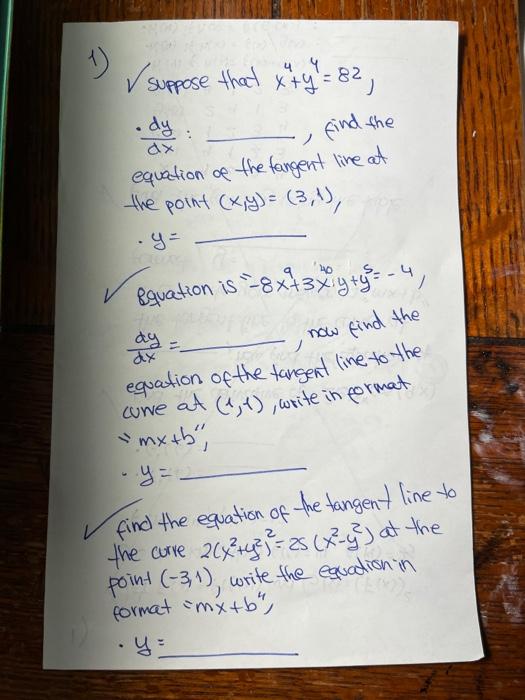 1)
✓ suppose that x⁴+y⁴=82,
· dy/dx : ________, find the
equation of the tangent line at
the point (x,y)= (3,1),
· y= ________
✓ Equation is "-8x⁹+3x⁴⁰y+y⁵=-4,
dy/dx = ________, now find the
equation of the tangent line to the
curve at (1,1), write in format
"mx+b",
· y= ________
✓ find the equation of the tangent line to
the curve 2(x²+y²)²=25(x²-y²) at the
point (-3,1), write the equation in
format "mx+b",
· y= ________